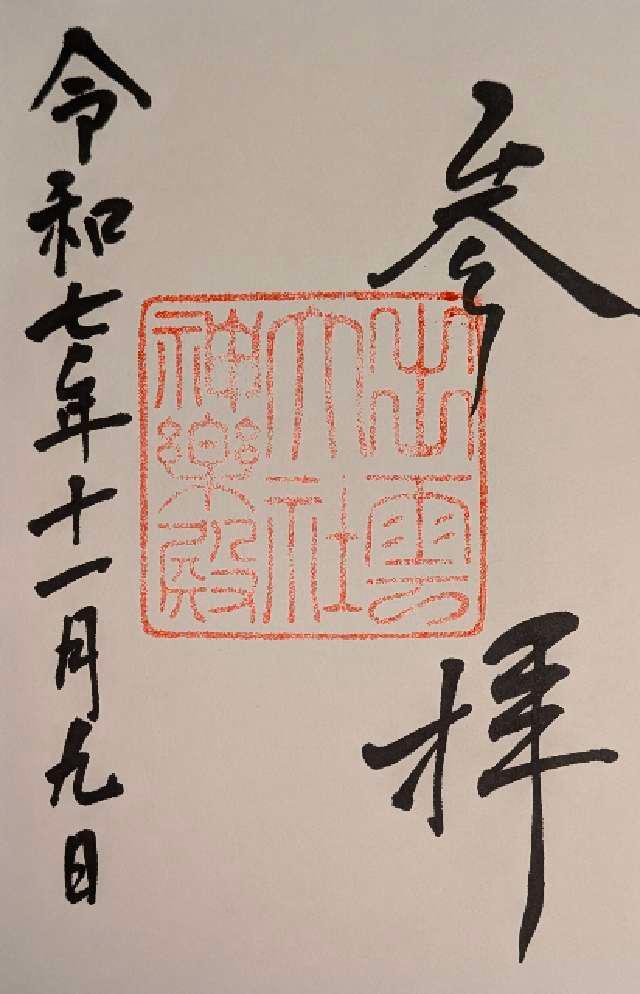 参拝
出雲
大社
神楽殿
令和七年十一月九日